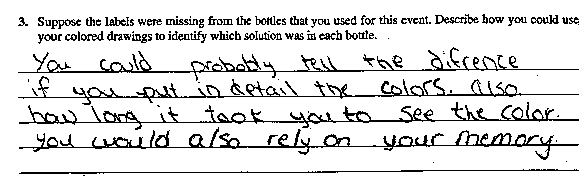 3. Suppose the labels were missing from the bottles that you used for this event. Describe how you could use
your colored drawings to identify which solution was in each bottle.
You could probobly tell the difrence
if you put in detail the colors. also
how long it took you to see the color.
you would also rely on your memory.